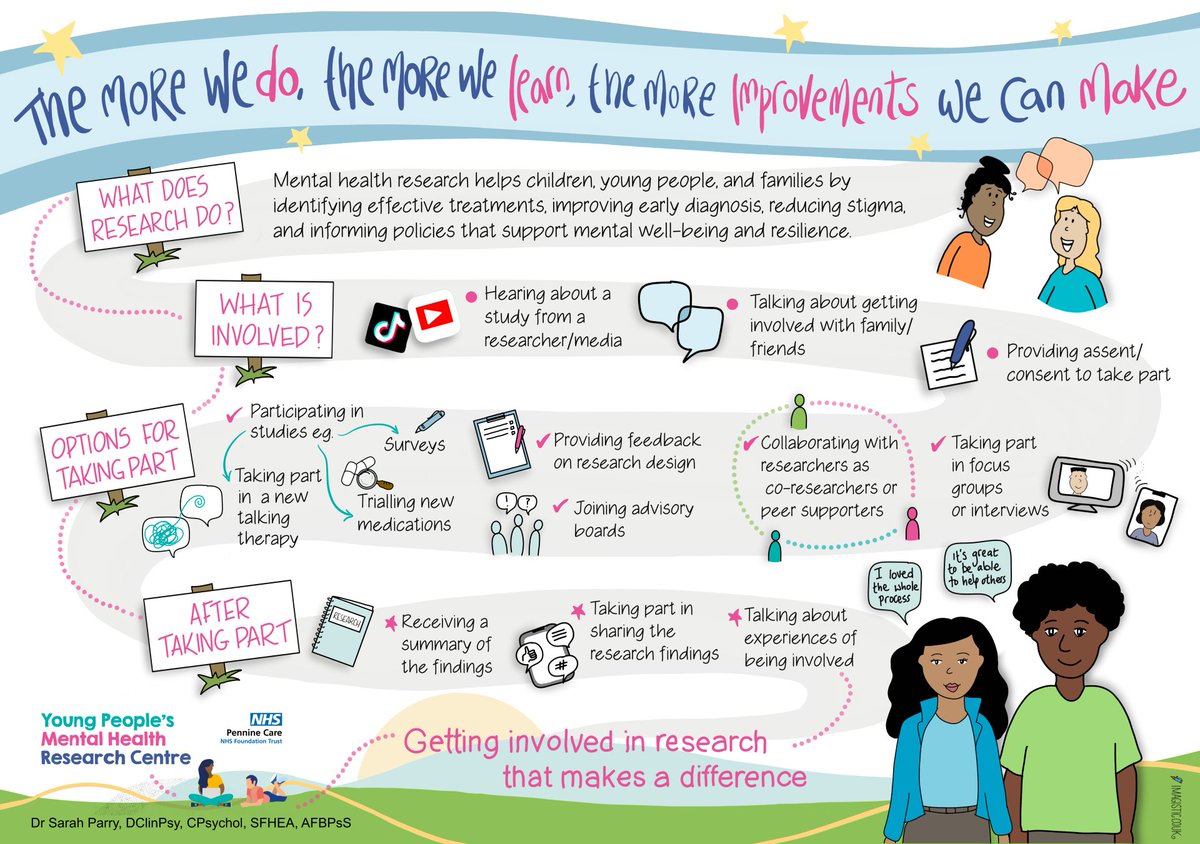 The more we do, the more we learn, the more improvements we can make
WHAT DOES
RESEARCH DO?
Mental health research helps children, young people, and families by
identifying effective treatments, improving early diagnosis, reducing stigma,
and informing policies that support mental well-being and resilience.
WHAT IS
INVOLVED?
Hearing about a
study from a
researcher/media
Talking about getting
involved with family/
friends
Providing assent/
consent to take part
OPTIONS FOR
TAKING PART
Participating in
studies eg.
Surveys
Taking part
in a new
talking
therapy
Trialling new
medications
Providing feedback
on research design
! ?
Joining advisory
boards
Collaborating with
researchers as
co-researchers or
peer supporters
Taking part
in focus
groups
or interviews
AFTER
TAKING PART
RESEARCH
Receiving a
summary of
the findings
#
Taking part in
sharing the
research findings
Talking about
experiences of
being involved
I loved
the whole
process
It's great
to be able
to help others
Young People's
Mental Health
Research Centre
NHS
Pennine Care
NHS Foundation Trust
Getting involved in research
that makes a difference
Dr Sarah Parry, DClinPsy, CPsychol, SFHEA, AFBPsS
IMAGISTIC.CO.UK